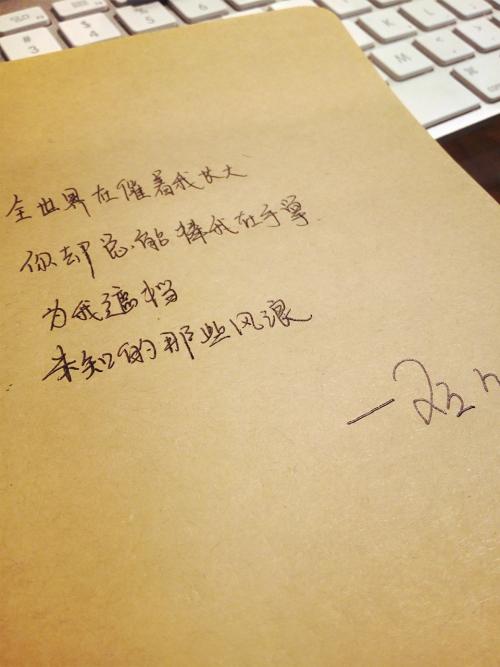 全世界在催着我长大
你却总能捧我在手掌
为我遮挡
未知的那些风浪